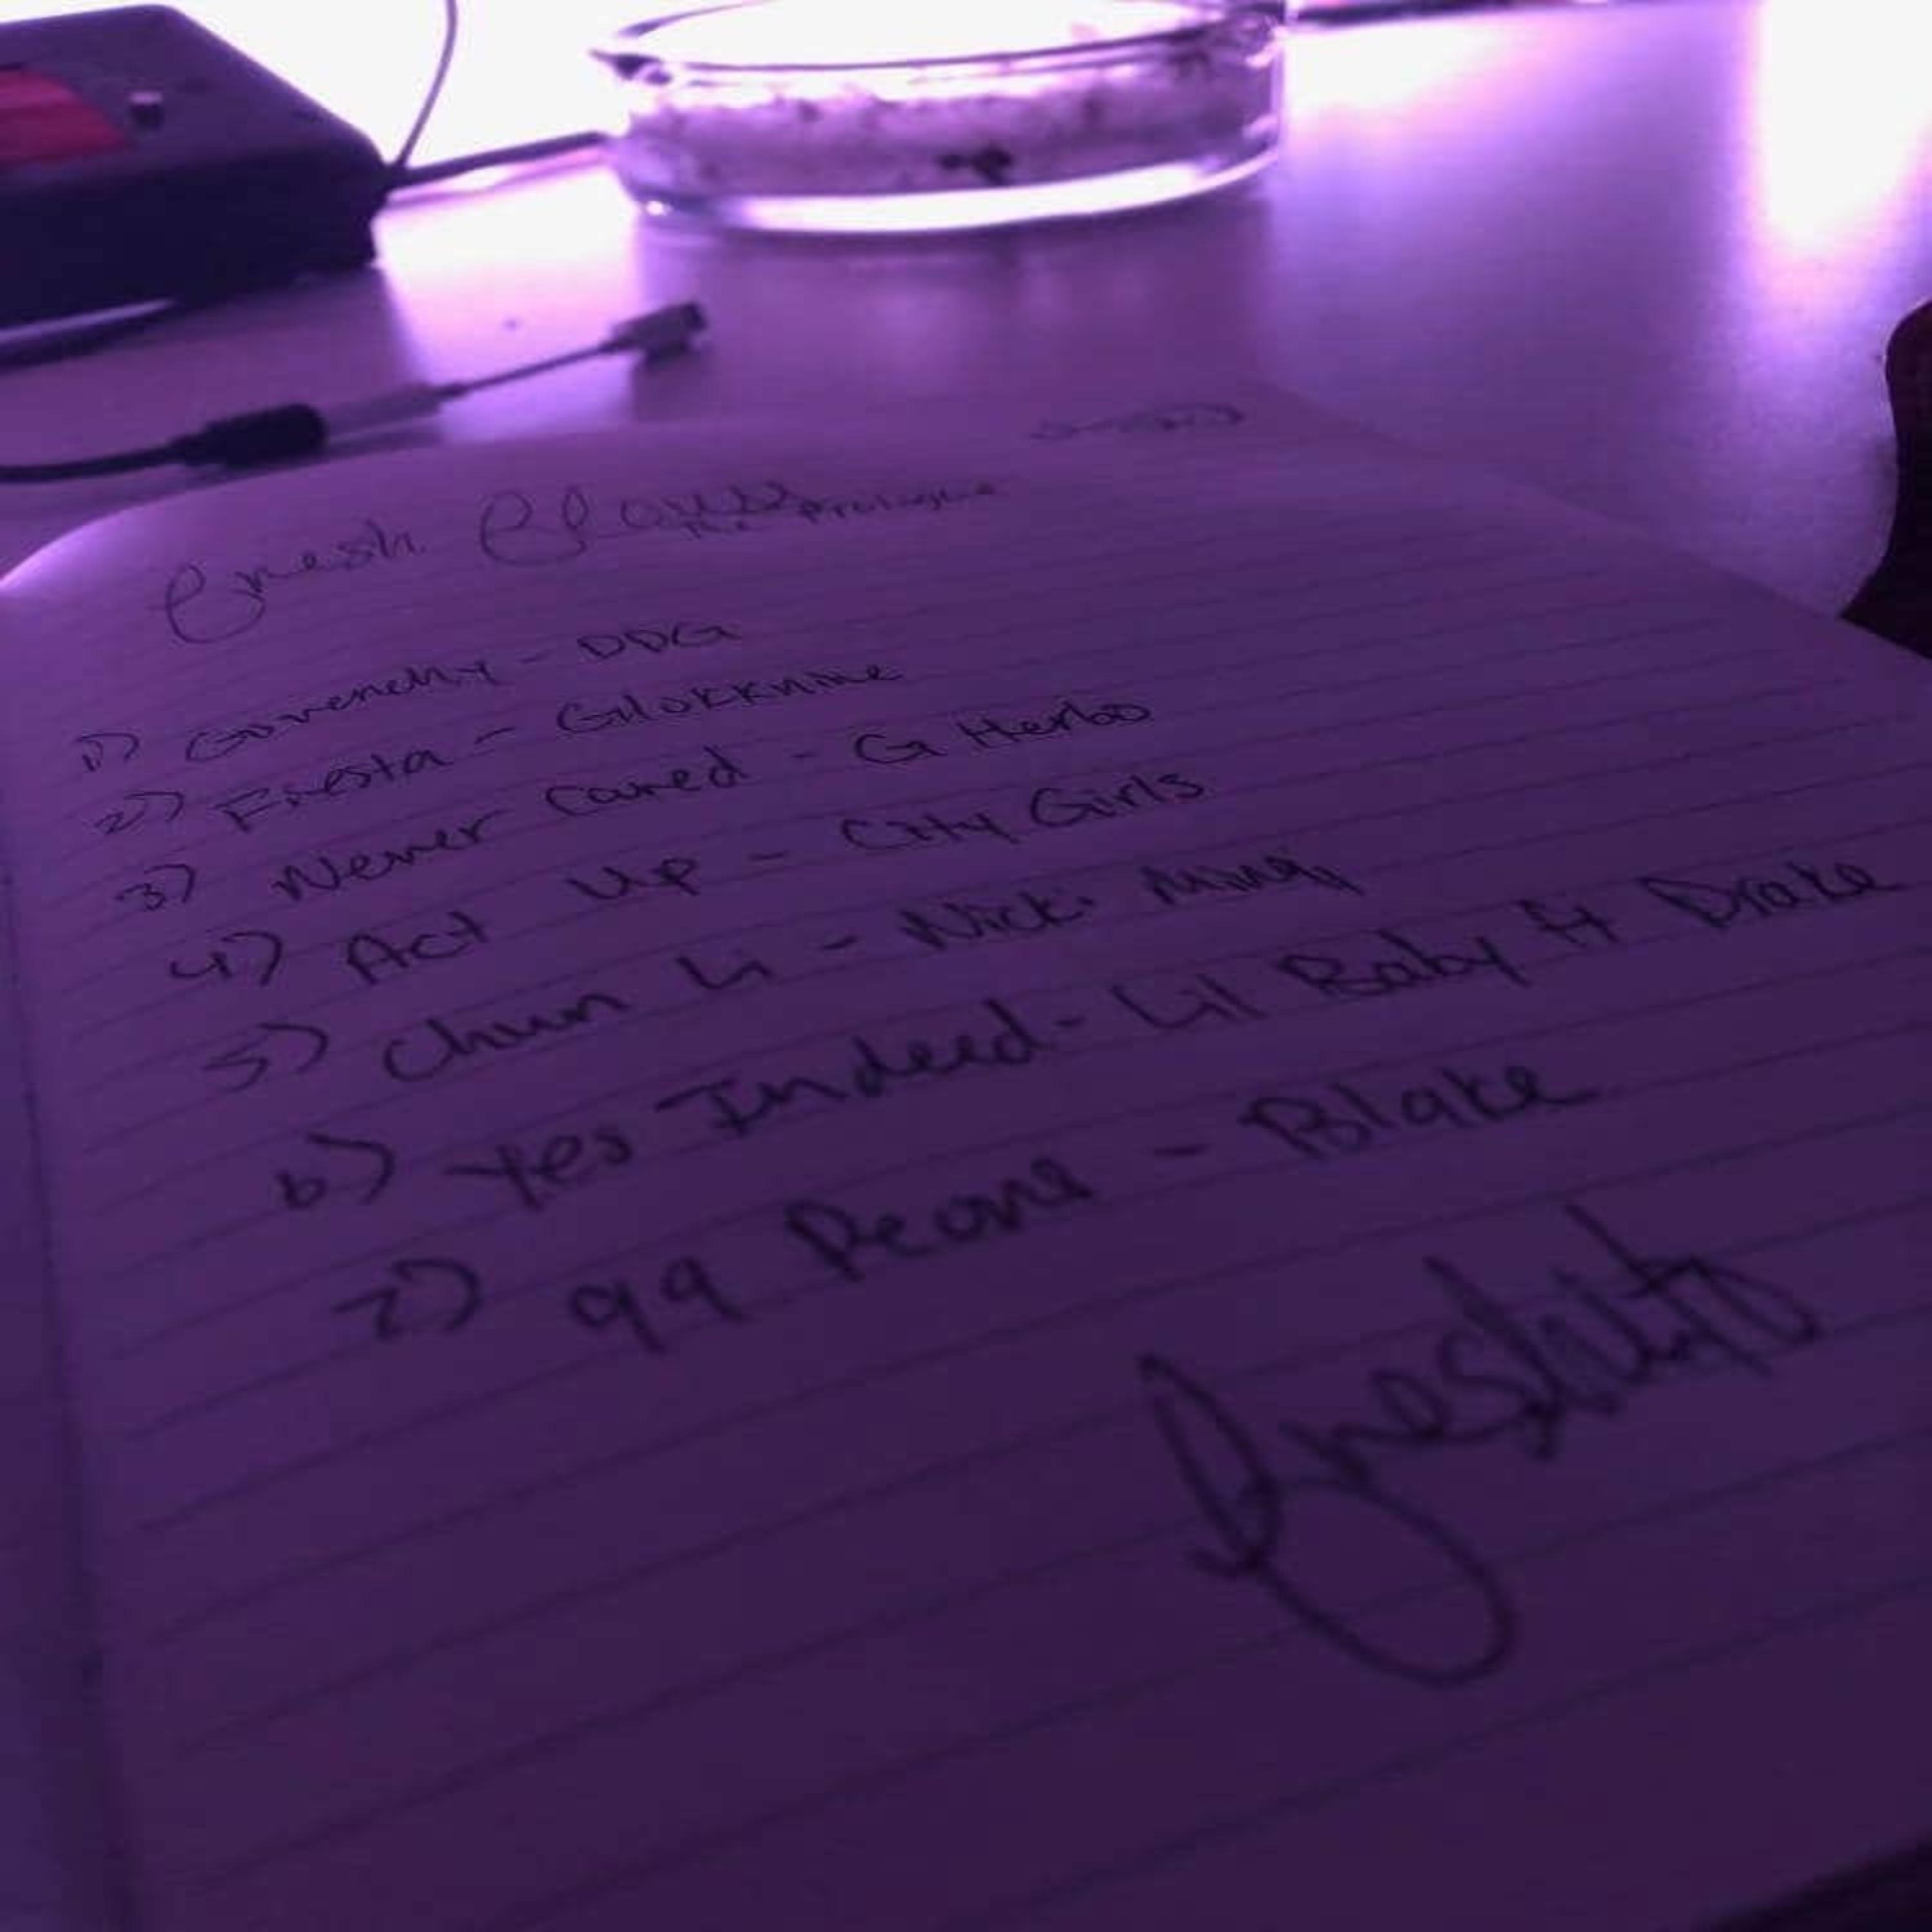 Fresh Flows
The Prologue
1) Givenchy - DDG
2) Fiesta - Glokknine
3) Never Cared - G Herbo
4) Act Up - City Girls
5) Chun Li - Nicki Minaj
6) Yes Indeed - Lil Baby ft Drake
7) 99 Peons - Blake